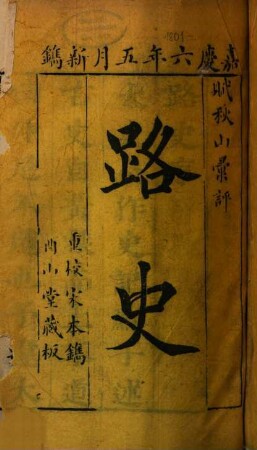 嘉慶六年五月新鐫
賦秋山彙評
路史
重校宋本鐫
酉山堂藏板